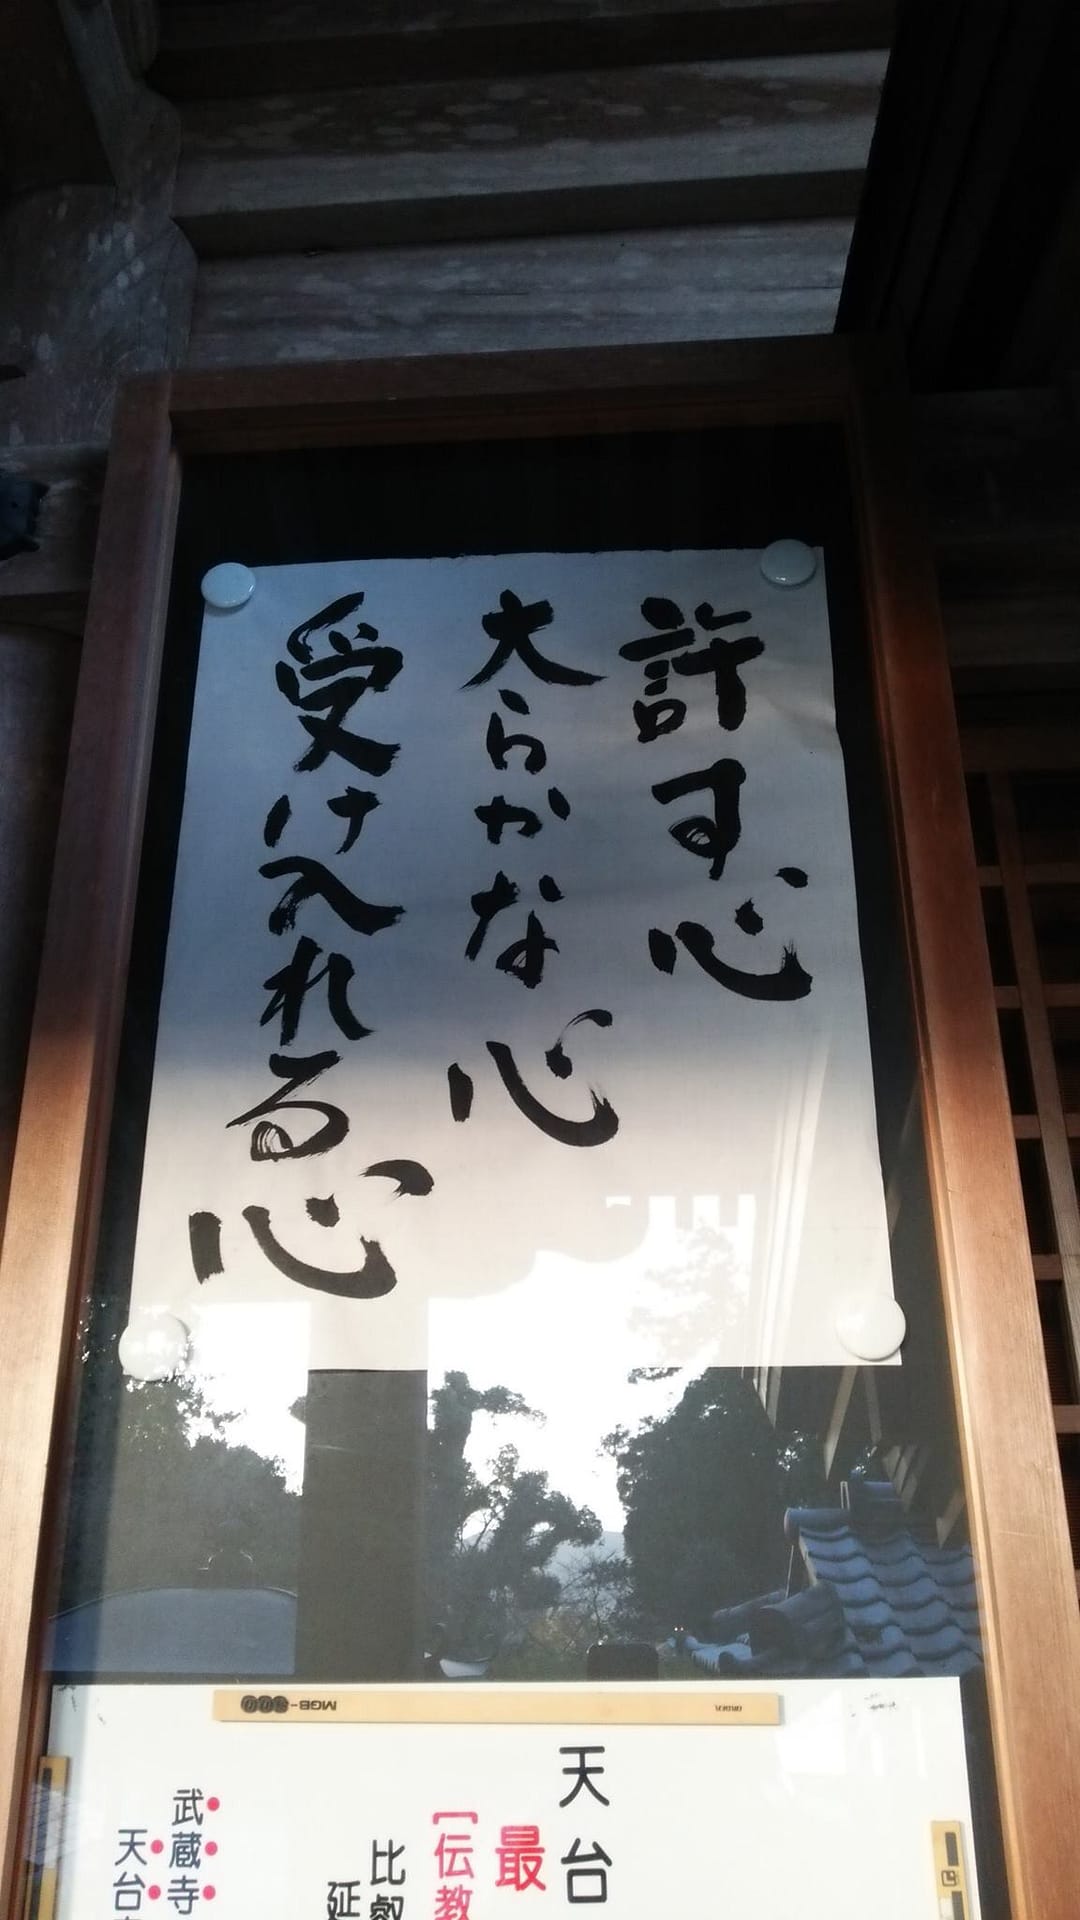 許す心
大らかな心
受け入れる心
MGB-500
天台
最
［伝教
比叡
延
武蔵寺
天台